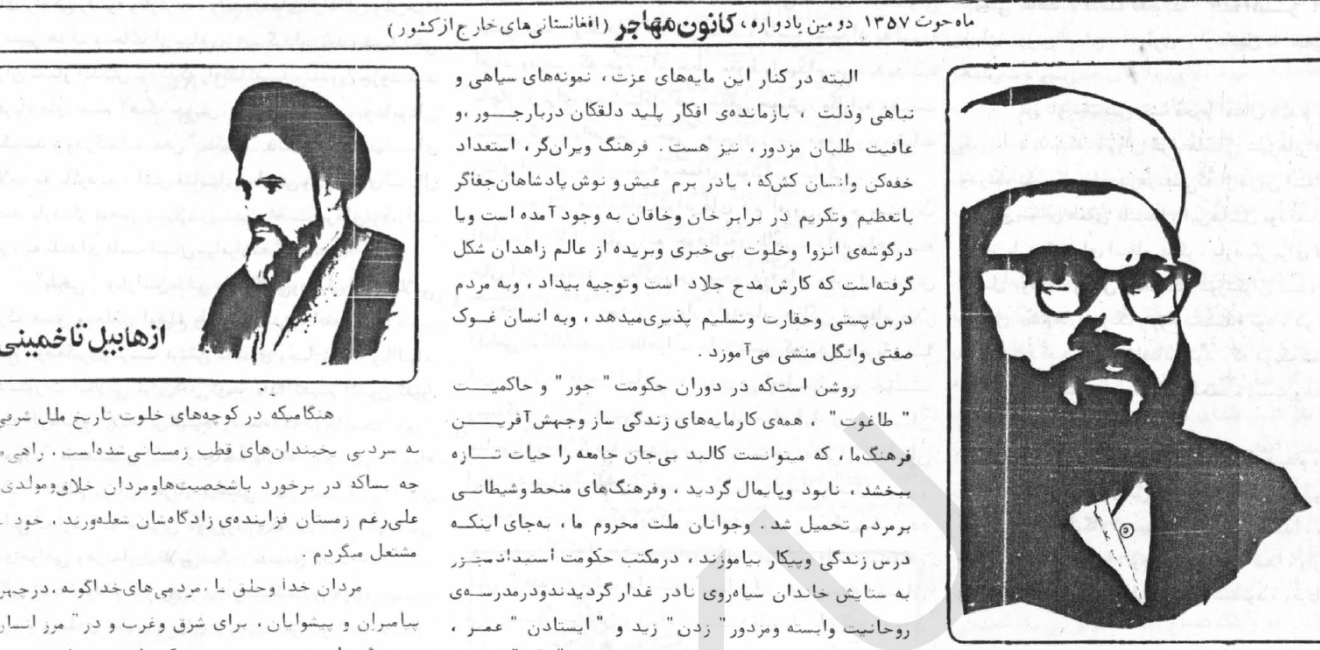 ماه حوت ۱۳۵۷ دومین یادواره، کانون مهاجر (افغانستانی‌های خارج از کشور)
البته در کنار این مایه‌های عزت ، نمونه‌های سیاهی و
تباهی وذلت ، بازمانده‌ی افکار پلید دلقکان دربارجــور ،و
عافیت طلبان مزدور ، نیز هست . فرهنگ ویران‌گر ، استعداد
خفه‌کن وانسان کش‌که ، یادر بزم عیش و نوش پادشاهان‌جفاگر
باتعظیم وتکریم در برابر خان وخاقان به وجود آمده است ویا
درگوشه‌ی انزوا وخلوت بی‌خبری وبریده از عالم زاهدان شکل
گرفته‌است که کارش مدح جلاد است وتوجیه بیداد ، وبه مردم
درس پستی وحقارت وتسلیم پذیری‌میدهد ، وبه انسان خــوک
صفتی وانگل منشی می‌آموزد .
روشن است‌که در دوران حکومت " جور " وحاکمیـــت
" طاغوت " همه‌ی کارمایه‌های زندگی ساز وجهش‌آفریــــن
فرهنگ‌ما ، که میتوانست کالبد بی‌جان جامعه را حیات تـــازه
ببخشد ، نابود وپایمال گردید ، وفرهنگ‌های منحط وشیطانــی
برمردم تحمیل شد . وجوانان ملت محروم ما ، به‌جای اینکــه
درس زندگی وپیکار بیاموزند ، درمکتب حکومت استبداد
به ستایش خاندان سیاه‌روی نادر غدار گردیدندودرمدرســه‌ی
روحانیت وابسته ومزدور" زدن " زید و " ایستادن " عمـر ،
ازهابیل تا خمینی
هنگامیکه در کوچه‌های خلوت تاریخ ملل شرقی
به سردی یخبندان‌های قطب زمستانی شده‌است ، راهی
چه بساکه در برخورد باشخصیت‌هاومردان خلاق‌ومولدی
علی‌رغم زمستان فزاینده‌ی زادگاه‌شان شعله‌ورند ، خود
مشتعل میگردم .
مردان خدا وخلق ، مردمی‌های خداگونه ،درچهره
پیامبران و پیشوایان ، برای شرق وغرب و در" مرز انسان